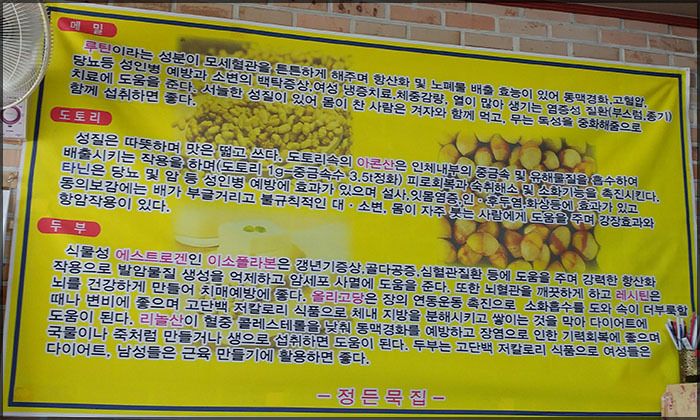 메밀
루틴이라는 성분이 모세혈관을 튼튼하게 해주며 항산화 및 노폐물 배출 효능이 있어 동맥경화,고혈압,
당뇨등 성인병 예방과 소변의 백탁증상,여성 냉증치료,체중감량, 열이 많아 생기는 염증성 질환(부스럼,종기)
치료에 도움을 준다. 서늘한 성질이 있어 몸이 찬 사람은 겨자와 함께 먹고, 무는 독성을 중화해줌으로
함께 섭취하면 좋다.
도토리
성질은 따뜻하며 맛은 떫고 쓰다. 도토리속의 아콘산은 인체내부의 중금속 및 유해물질을 흡수하여
배출시키는 작용을 하며(도토리 1g-중금속수 3.5t정화) 피로회복과 숙취해소 및 소화기능을 촉진시킨다.
타닌은 당뇨 및 암 등 성인병 예방에 효과가 있으며 설사,잇몸염증,인·후두염,화상등에 효과가 있고
동의보감에는 배가 부글거리고 불규칙적인 대·소변, 몸이 자주 붓는 사람에게 도움을 주며 강장효과와
항암작용이 있다.
두부
식물성 에스트로겐인 이소플라본은 갱년기증상,골다공증,심혈관질환 등에 도움을 주며 강력한 항산화
작용으로 발암물질 생성을 억제하고 암세포 사멸에 도움을 준다. 또한 뇌혈관을 깨끗하게 하고 레시틴은
뇌를 건강하게 만들어 치매예방에 좋다. 올리고당은 장의 연동운동 촉진으로 소화흡수를 도와 속이 더부룩할
때나 변비에 좋으며 고단백 저칼로리 식품으로 체내 지방을 분해시키고 쌓이는 것을 막아 다이어트에
도움이 된다. 리놀산이 혈중 콜레스테롤을 낮춰 동맥경화를 예방하고 장염으로 인한 기력회복에 좋으며
국물이나 죽처럼 만들거나 생으로 섭취하면 도움이 된다. 두부는 고단백 저칼로리 식품으로 여성들은
다이어트, 남성들은 근육 만들기에 활용하면 좋다.
- 정든묵집 -